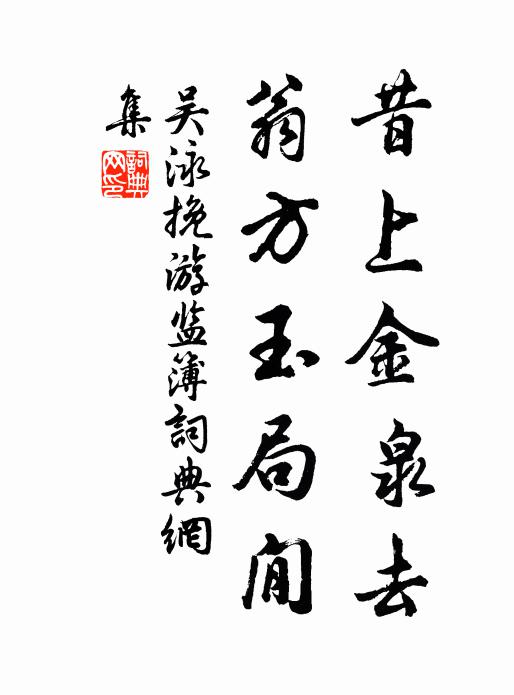 昔上金泉去
翁方玉局閒
吴泳挽游监簿詞典網
集
詞典
网印